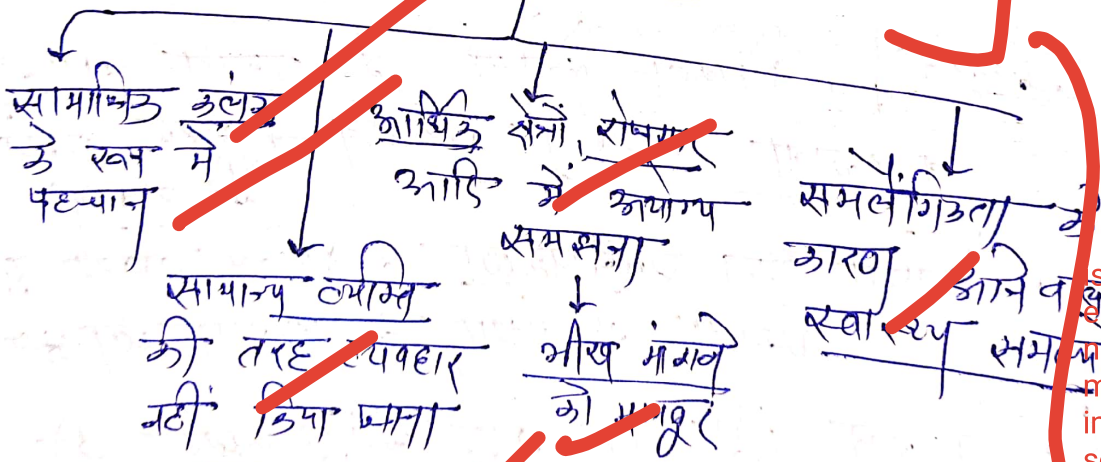 सामाजिक कलंक
के रूप में
पहचान
सामान्य व्यक्ति
की तरह व्यवहार
नहीं किया जाना
आर्थिक क्षेत्रों, रोजगार
आदि में अयोग्य
समझना
भीख मांगने
को मजबूर
समलैंगिकता के
कारण
स्वास्थ्य समस्या